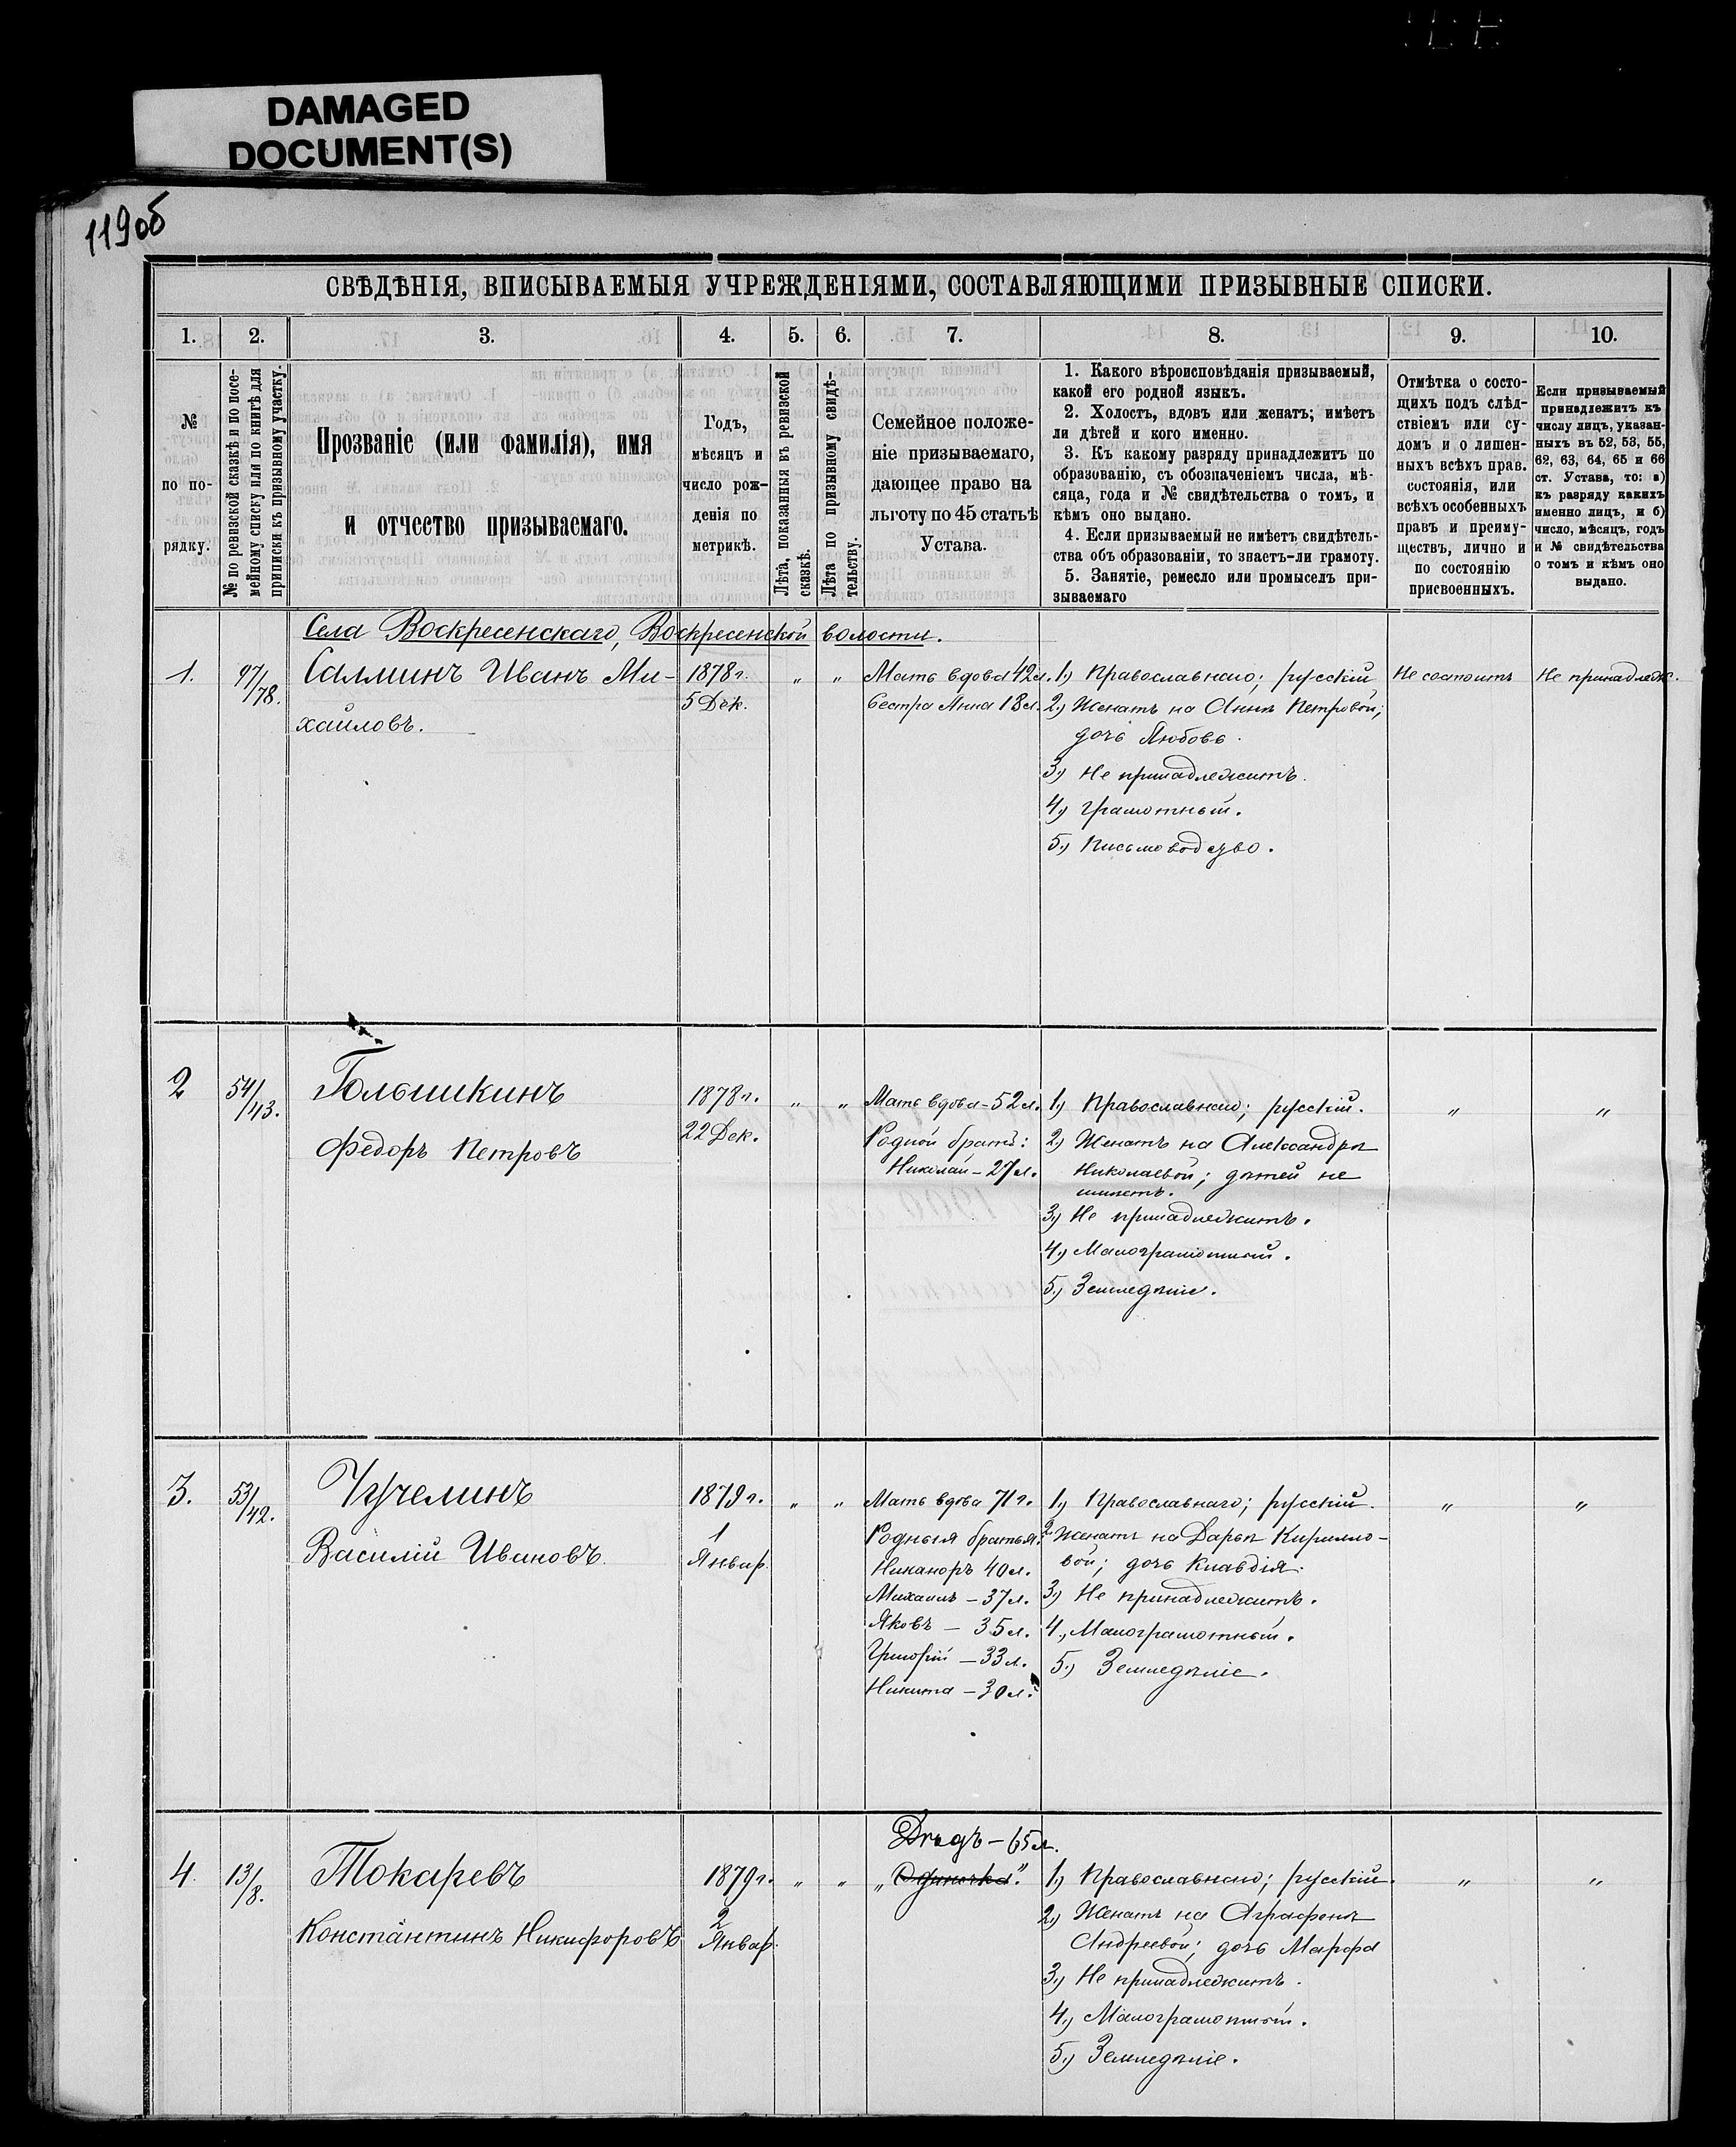 DAMAGED
DOCUMENT(S)
119об
СВѢДѢНІЯ, ВПИСЫВАЕМЫЯ УЧРЕЖДЕНІЯМИ, СОСТАВЛЯЮЩИМИ ПРИЗЫВНЫЕ СПИСКИ.
1.
2.
3.
4.
5.
6.
7.
8.
9.
10.
№
по по-
рядку.
№ по ревизской сказкѣ и по посе-
мейному списку или по книгѣ для
приписки къ призывному участку.
Прозваніе (или фамилія), имя
и отчество призываемаго.
Годъ,
мѣсяцъ и
число рож-
денія по
метрикѣ.
Лѣта, показанныя въ ревизской
сказкѣ.
Лѣта по призывному свидѣ-
тельству.
Семейное положе-
ніе призываемаго,
дающее право на
льготу по 45 статьѣ
Устава.
1. Какого вѣроисповѣданія призываемый,
какой его родной языкъ.
2. Холостъ, вдовъ или женатъ; имѣетъ
ли дѣтей и кого именно.
3. Къ какому разряду принадлежитъ по
образованію, съ обозначеніемъ числа, мѣ-
сяца, года и № свидѣтельства о томъ, и
кѣмъ оно выдано.
4. Если призываемый не имѣетъ свидѣтель-
ства объ образованіи, то знаетъ-ли грамоту.
5. Занятіе, ремесло или промыселъ при-
зываемаго
Отмѣтка о состо-
щихъ подъ слѣд-
ствіемъ или су-
домъ и о лишен-
ныхъ всѣхъ прав.
состоянія, или
всѣхъ особенныхъ
правъ и преиму-
ществъ, лично и
по состоянію
присвоенныхъ.
Если призываемый
принадлежитъ къ
числу лицъ, указан-
ныхъ въ 52, 53, 55,
62, 63, 64, 65 и 66
ст. Устава, то: а)
къ разряду какихъ
именно лицъ, и б)
число, мѣсяцъ, годъ
и № свидѣтельства
о томъ и кѣмъ оно
выдано.
Села Воскресенскаго, Воскресенской волости.
1.
97/78.
Салминъ Иванъ Ми-
хайловъ.
1878г.
5 Дек.
"
"
Мать вдова 42л.
Сестра Анна 18л.
1) Православнаго; русскій
2) Женатъ на Аннѣ Петровой;
дочь Любовь.
3) Не принадлежитъ.
4) Грамотный.
5) Письмоводство.
Не состоитъ
Не принадлеж.
2
54/43.
Голышкинъ
Федоръ Петровъ
1878г.
22 Дек.
"
"
Мать вдова - 52л.
Родной братъ:
Николай - 27л.
1) Православнаго; русскій.
2) Женатъ на Александрѣ
Николаевой; дѣтей не
имѣетъ.
3) Не принадлежитъ.
4) Малограмотный.
5) Земледѣліе.
"
"
3.
53/42.
Чучелинъ
Василій Ивановъ.
1879г.
1
Январ.
"
"
Мать вдова 71г.
Родныя братья:
Никаноръ 40л.
Михаилъ - 37л.
Яковъ - 35л.
Григорій - 33л.
Никита - 30л.
1) Православнаго; русскій.
2. Женатъ на Дарьѣ Кирилло-
вой; дочь Клавдія.
3) Не принадлежитъ.
4., Малограмотный.
5.) Земледѣліе.
"
"
4.
13/8.
Токаревъ
Константинъ Никифоровъ
1879г.
2
Январ.
"
"
Дѣдъ - 65л.
„Одиночка".
1) Православнаго; русскій.
2) Женатъ на Аграфенѣ
Андреевой; дочь Марфа
3) Не принадлежитъ.
4) Малограмотный.
5) Земледѣліе.
"
"